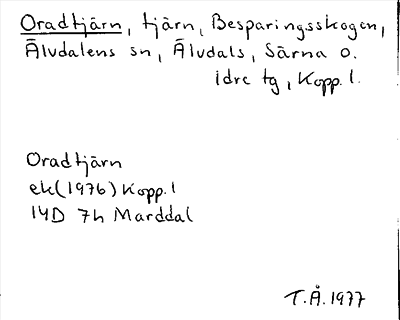 Oradtjärn, tjärn, Besparingsskogen,
Älvdalens sn, Älvdals, Särna o.
idre tg, Kopp. l.
Oradtjärn
ek(1976) Kopp. l
14D 7h Marddal
T.Å. 1977